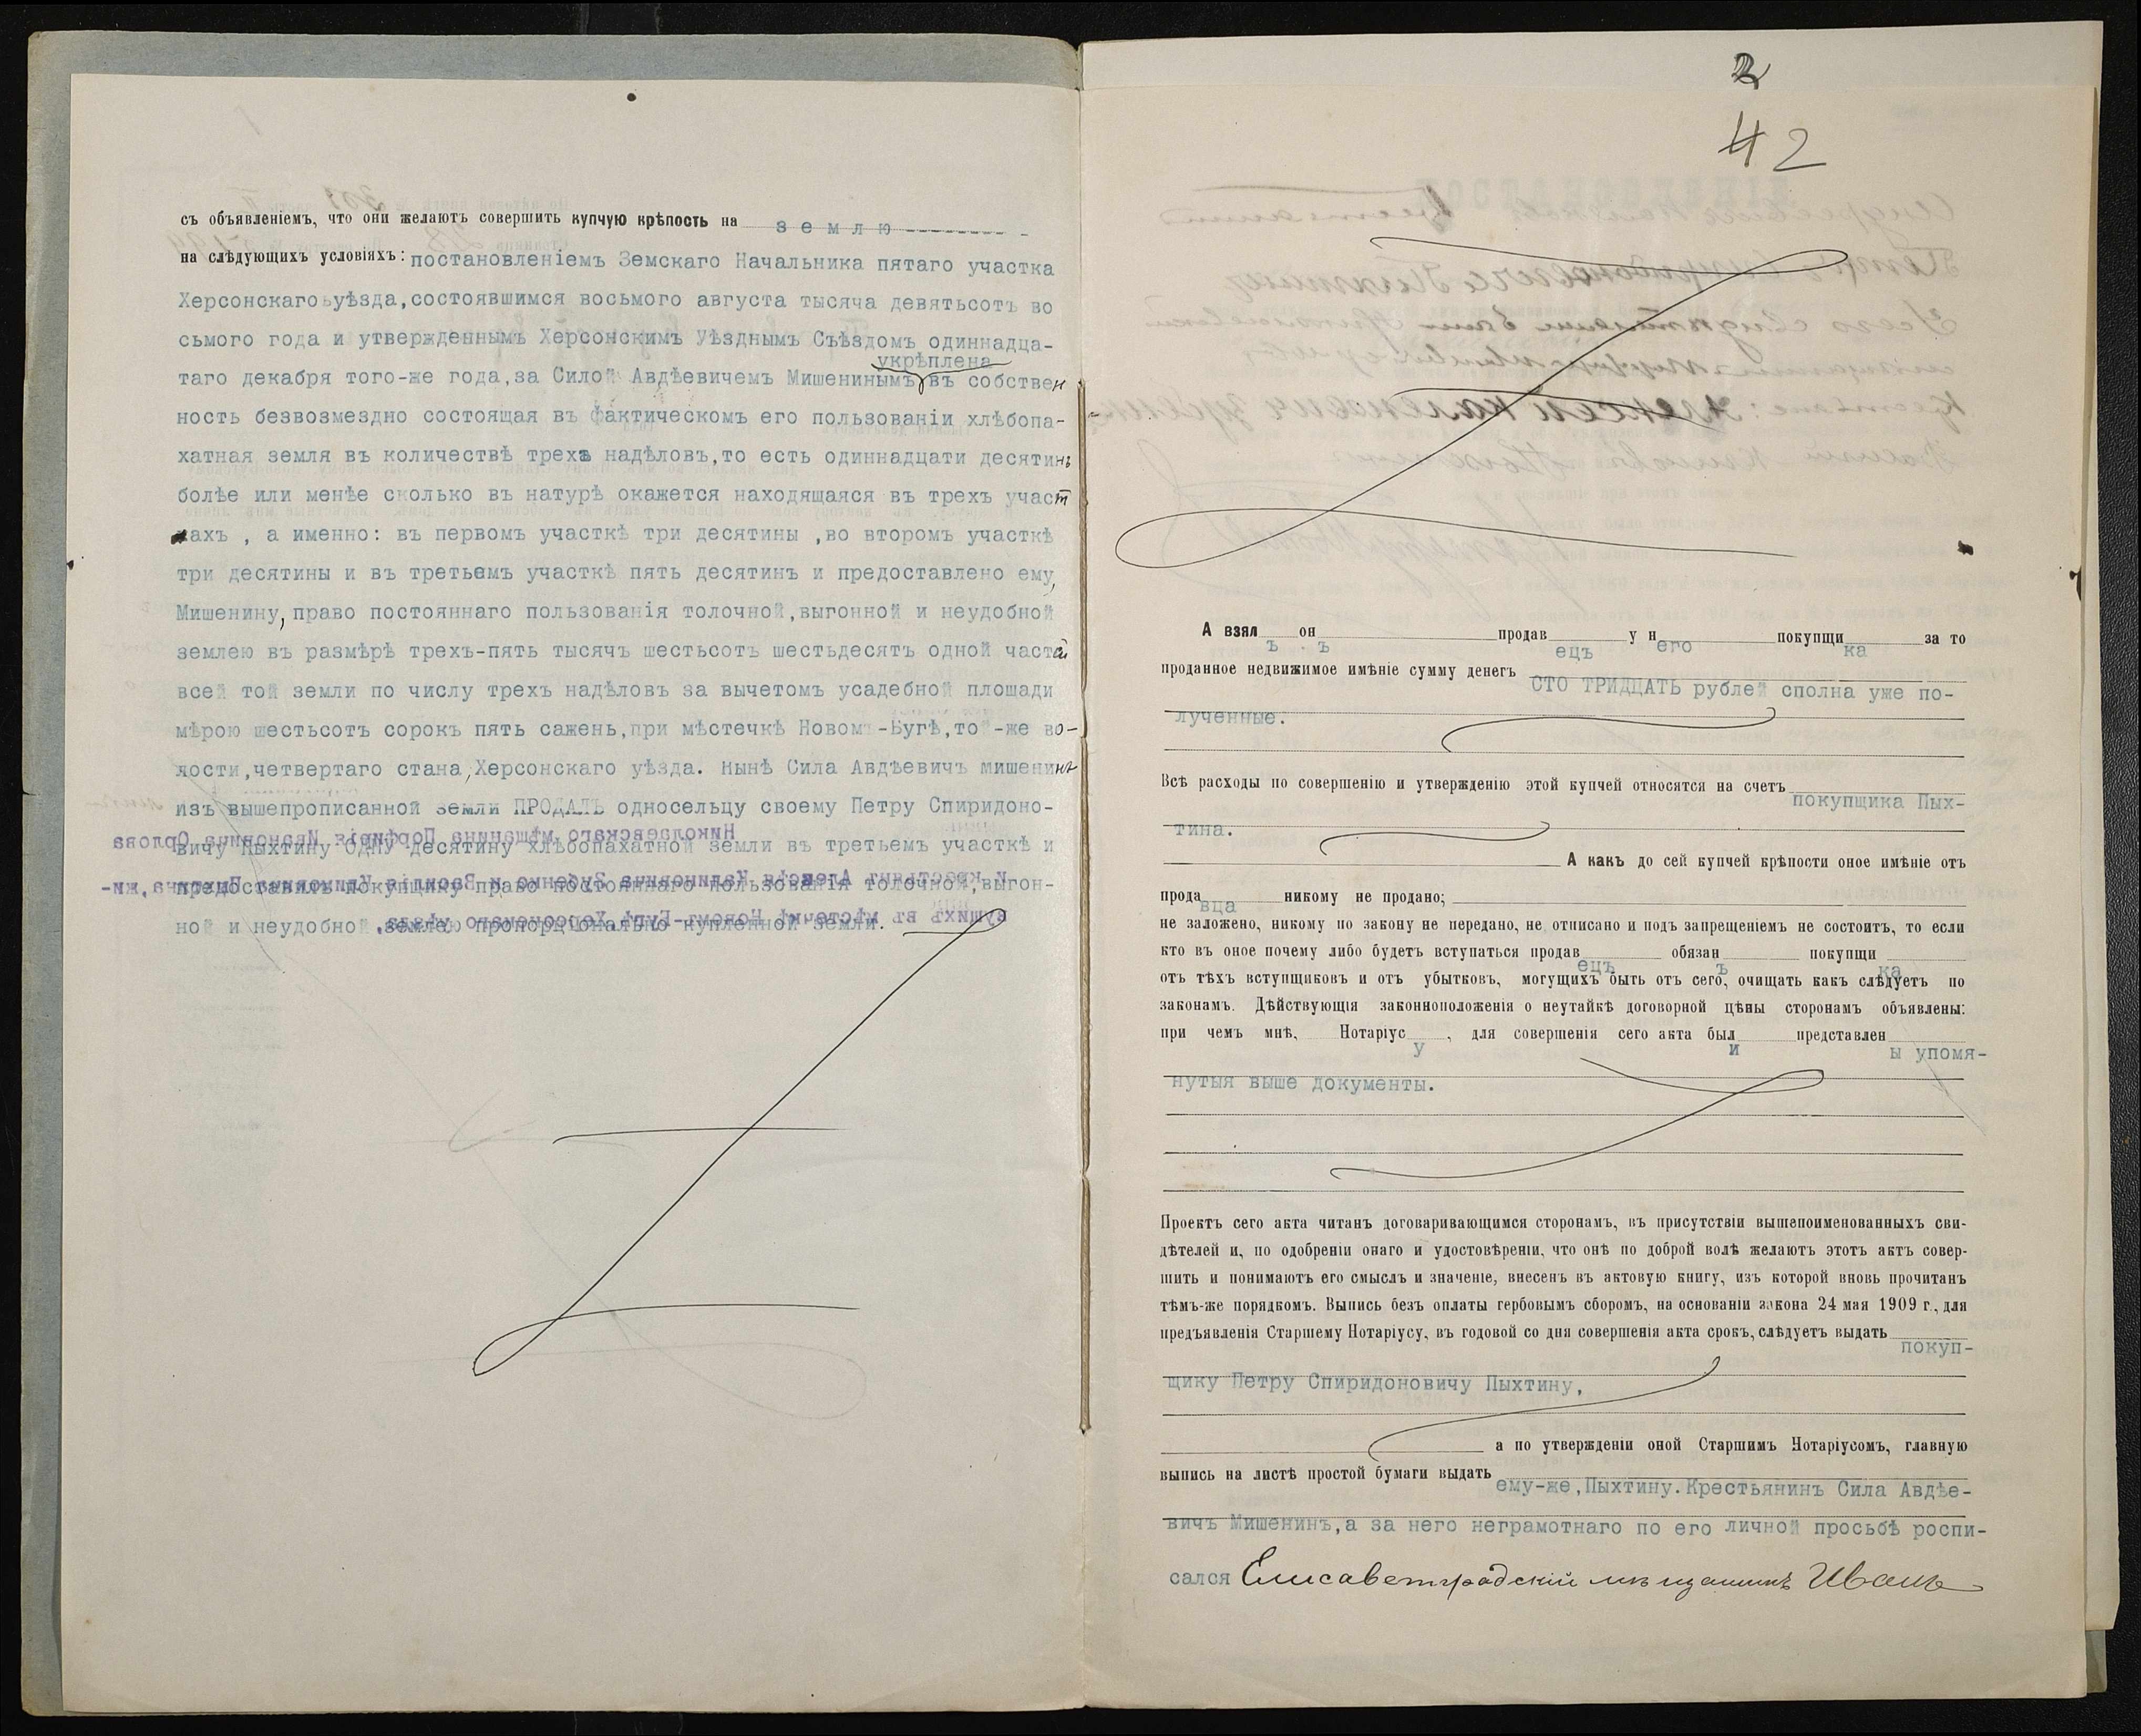 съ объявленіемъ, что они желаютъ совершить купчую крѣпость на землю
на слѣдующихъ условіяхъ: постановленіемъ Земскаго Начальника пятаго участка
Херсонскаго уѣзда, состоявшимся восьмого августа тысяча девятьсотъ во
сьмого года и утвержденнымъ Херсонскимъ Уѣзднымъ Съѣздомъ одиннадца-
укрѣплена
таго декабря того-же года, за Силой Авдѣевичемъ Мишенинымъ въ собствен
ность безвозмездно состоящая въ фактическомъ его пользованіи хлѣбопа-
хатная земля въ количествѣ трехъ надѣловъ, то есть одиннадцати десятинъ
болѣе или менѣе сколько въ натурѣ окажется находящаяся въ трехъ участ
кахъ, а именно: въ первомъ участкѣ три десятины, во второмъ участкѣ
три десятины и въ третьемъ участкѣ пять десятинъ и предоставлено ему,
Мишенину, право постояннаго пользованія толочной, выгонной и неудобной
землею въ размѣрѣ трехъ-пять тысячъ шестьсотъ шестьдесятъ одной частей
всей той земли по числу трехъ надѣловъ за вычетомъ усадебной площади
мѣрою шестьсотъ сорокъ пять сажень, при мѣстечкѣ Новомъ-Бугѣ, той-же во-
лости, четвертаго стана, Херсонскаго уѣзда. Нынѣ Сила Авдѣевичъ Мишенинъ
изъ вышепрописанной земли ПРОДАЛЪ односельцу своему Петру Спиридоно-
вичу Пыхтину ОДНУ десятину хлѣбопахатной земли въ третьемъ участкѣ и
предоставилъ покупщику право постояннаго пользованія толочной, выгон-
ной и неудобной землею пропорціонально купленной земли.
2
42
А взялъ онъ продавецъ у него покупщика за то
проданное недвижимое имѣніе сумму денегъ СТО ТРИДЦАТЬ рублей сполна уже по-
лученные.
Всѣ расходы по совершенію и утвержденію этой купчей относятся на счетъ покупщика Пых-
тина.
А какъ до сей купчей крѣпости оное имѣніе отъ
продавца никому не продано;
не заложено, никому по закону не передано, не отписано и подъ запрещеніемъ не состоитъ, то если
кто въ оное почему либо будетъ вступаться продавецъ обязанъ покупщика
отъ тѣхъ вступщиковъ и отъ убытковъ, могущихъ быть отъ сего, очищать какъ слѣдуетъ по
законамъ. Дѣйствующія законноположенія о неутайкѣ договорной цѣны сторонамъ объявлены:
при чемъ мнѣ, Нотаріусу, для совершенія сего акта были представлены упомя-
нутыя выше документы.
Проектъ сего акта читанъ договаривающимся сторонамъ, въ присутствіи вышепоименованныхъ сви-
дѣтелей и, по одобреніи онаго и удостовѣреніи, что онѣ по доброй волѣ желаютъ этотъ актъ совер-
шить и понимаютъ его смыслъ и значеніе, внесенъ въ актовую книгу, изъ которой вновь прочитанъ
тѣмъ-же порядкомъ. Выпись безъ оплаты гербовымъ сборомъ, на основаніи закона 24 мая 1909 г., для
предъявленія Старшему Нотаріусу, въ годовой со дня совершенія акта срокъ, слѣдуетъ выдать покуп-
щику Петру Спиридоновичу Пыхтину,
а по утвержденіи оной Старшимъ Нотаріусомъ, главную
выпись на листѣ простой бумаги выдать ему-же, Пыхтину. Крестьянинъ Сила Авдѣе-
вичъ Мишенинъ, а за него неграмотнаго по его личной просьбѣ роспи-
сался Елисаветградскій мѣщанинъ Иванъ